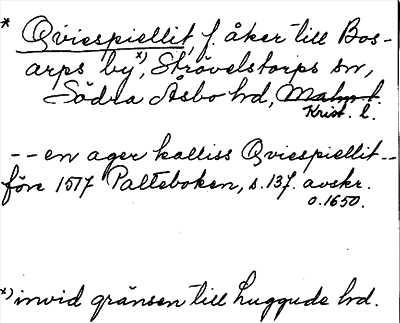 * Qviespiellit, f. åker till Bos-
arps by x), Strövelstorps sn,
Södra Åsbo hd, Malm. l.
Krist. l.
-- en ager kalliss Qviespiellit --
före 1517 Palteboken, s. 137. avskr.
o. 1650.
x) invid gränsen till Luggude hd.